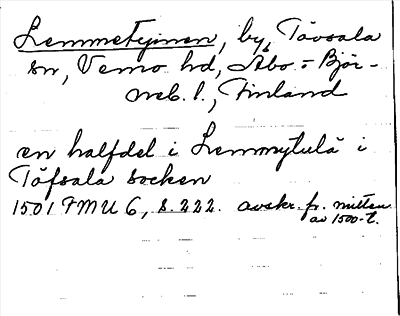 Lemmetyinen, by, Tövsala
sn, Vemo hd, Åbo = Björ-
neb. l., Finland
en halfdel i Lemmytulä i
Töfsala socken
1501 FMU 6, s. 222. avskr. fr. mitten
av 1500-t.